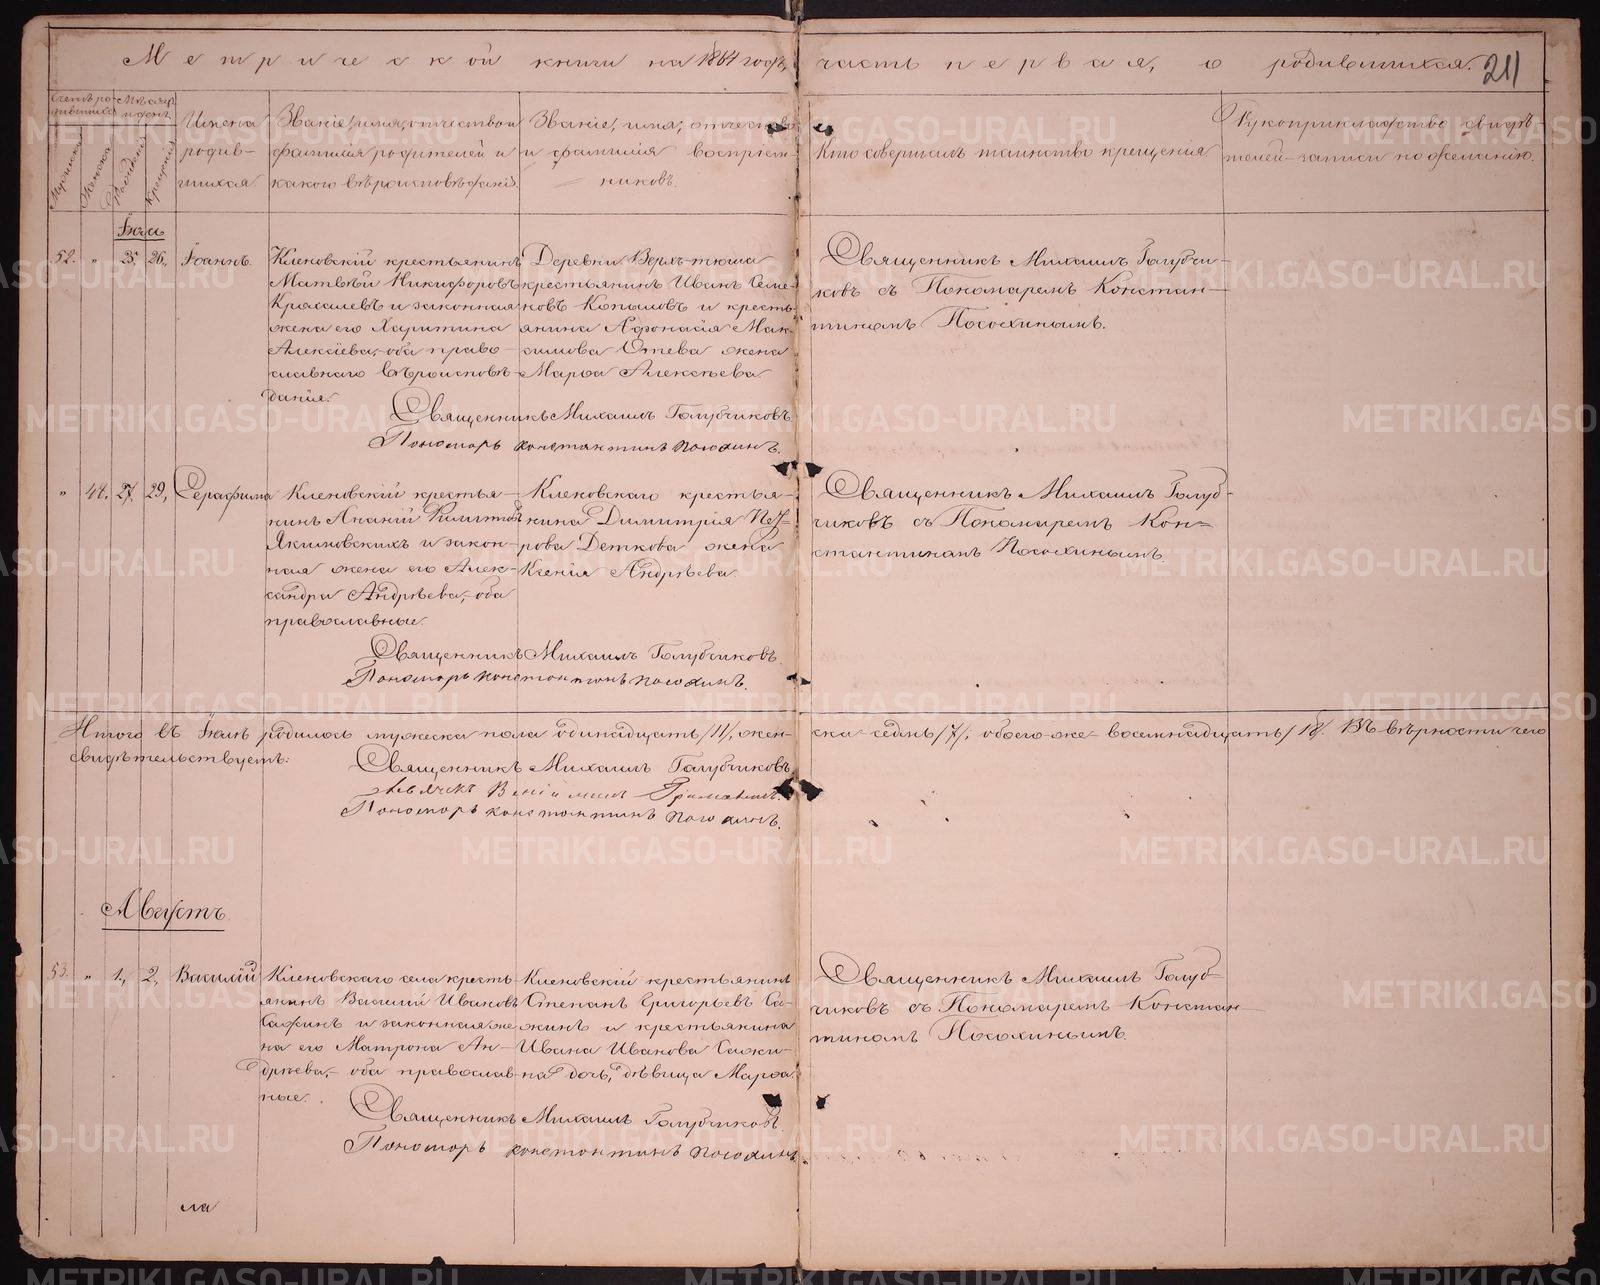 Метрической книги на 1864 годъ, часть первая, о родившихся. 211
Счетъ родившихся
Мужеска
Женска
Мѣсяцъ и день
Рожденія
Крещенія
Имена
родив-
шихся.
Званіе, имя, отчество и
фамилія родителей и
какого вѣроисповѣданія.
Званіе, имя, отчество
и фамилія воспріем-
никовъ.
Кто совершалъ таинство крещенія
Рукоприкладство свидѣ-
телей записи по желанію.
Іюль
52. " 25, 26, Іоаннъ.
Кленовскій крестьянинъ
Матѳей Никифоровъ
и законная
жена его Харитина
Алексіева, оба право-
славнаго вѣроисповѣ-
данія.
Деревни Верхъ-тиша
крестьянинъ Иванъ Семе-
новъ Копыловъ и кресть-
янина Афонасія Мак-
симова Отева жена
Марѳа Алексѣева
Священникъ Михаилъ Голубчи-
ковъ съ Пономаремъ Констан-
тиномъ Посохинымъ.
Священникъ Михаилъ Голубчиковъ
Пономарь Константинъ Посохинъ.
" 44. 27, 29, Серафима
Кленовскій крестья-
нинъ Ананій
Якимовскихъ и закон-
ная жена его Алек-
сандра Андрѣева, оба
православные.
Кленовскаго крестья-
нина Димитрія Пет-
рова Деткова жена
Ксенія Андрѣева.
Священникъ Михаилъ Голуб-
чиковъ съ Пономаремъ Кон-
стантиномъ Посохинымъ.
Священникъ Михаилъ Голубчиковъ.
Пономарь Константинъ Посохинъ.
Итого въ Іюлѣ родилось мужеска пола одинадцать /11/, жен-
ска седмь /7/, обоего же восемнадцать /18/. Въ вѣрности чего
свидѣтельствуетъ:
Священникъ Михаилъ Голубчиковъ
Дьячекъ
Пономарь Константинъ Посохинъ.
Августъ
53. " 1, 2, Василій
Кленовскаго села кресть-
янинъ Василій Ивановъ
Сажинъ и законная же-
на его Матрона Ан-
дрѣева, оба православ-
ные.
Кленовскій крестьянинъ
Степанъ Григорьевъ Са-
жинъ и крестьянина
Ивана Иванова Сажи-
на дочь, дѣвица Марѳа.
Священникъ Михаилъ Голуб-
чиковъ съ Пономаремъ Констан-
тиномъ Посохинымъ.
Священникъ Михаилъ Голубчиковъ.
Пономарь Константинъ Посохинъ.
ла
METRIKI.GASO-URAL.RU